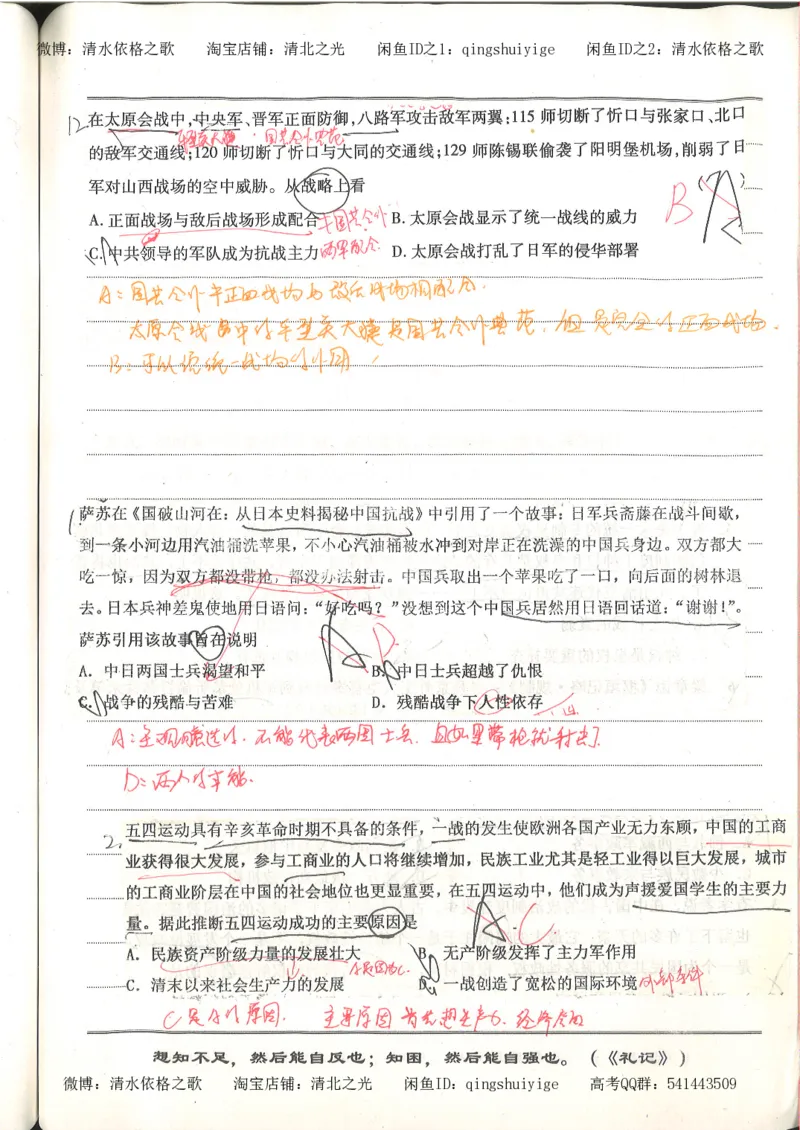 微博：清水依格之歌 淘宝店铺：清北之光 闲鱼ID之1：qingshuiyige 闲鱼ID之2：清水依格之歌
12 在太原会战中，中央军、晋军正面防御，八路军攻击敌军两翼；115 师切断了忻口与张家口、北口
平型关大捷 国共合作典范
的敌军交通线；120 师切断了忻口与大同的交通线；129 师陈锡联偷袭了阳明堡机场，削弱了日
军对山西战场的空中威胁。从战略上看
B (A)
A. 正面战场与敌后战场形成配合 B. 太原会战显示了统一战线的威力
国共合作
C. 中共领导的军队成为抗战主力 D. 太原会战打乱了日军的侵华部署
两军配合
A：国共合作 正面战场与敌后战场相配合.
太原会战 平型关大捷是国共合作典范. 但是 正面战场.
B：
1. 萨苏在《国破山河在：从日本史料揭秘中国抗战》中引用了一个故事：日军兵斋藤在战斗间歇，
到一条小河边用汽油桶洗苹果，不小心汽油桶被水冲到对岸正在洗澡的中国兵身边。双方都大
吃一惊，因为双方都没带枪，都没办法射击。中国兵取出一个苹果吃了一口，向后面的树林退
去。日本兵神差鬼使地用日语问：“好吃吗？”没想到这个中国兵居然用日语回话道：“谢谢！”。
萨苏引用该故事旨在说明
A D
A．中日两国士兵渴望和平 B．中日士兵超越了仇恨
C．战争的残酷与苦难 D．残酷战争下人性依存
A：主观臆造 不能代表两国士兵. 且如果带枪就射击了.
D：两人 本能.
2. 五四运动具有辛亥革命时期不具备的条件，一战的发生使欧洲各国产业无力东顾，中国的工商
业获得很大发展，参与工商业的人口将继续增加，民族工业尤其是轻工业得以巨大发展，城市
的工商业阶层在中国的社会地位也更显重要，在五四运动中，他们成为声援爱国学生的主要力
量。据此推断五四运动成功的主要原因是
A. C
A．民族资产阶级力量的发展壮大 B．无产阶级发挥了主力军作用
A是因为C.
C．清末以来社会生产力的发展 D．一战创造了宽松的国际环境
外部条件
C是A的原因. 主要原因首先想生产力、经济
想知不足，然后能自反也；知困，然后能自强也。（《礼记》）
微博：清水依格之歌 淘宝店铺：清北之光 闲鱼ID：qingshuiyige 高考QQ群：541443509